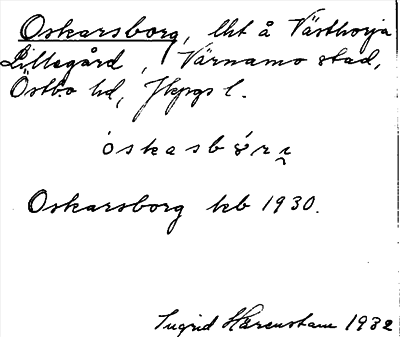 Oskarsborg, lht å Västhorja
Lillegård, Värnamo stad,
Östbo hd, Jkpgs l.
Oskarsborg kb 1930.
Ingrid Härenstam 1932